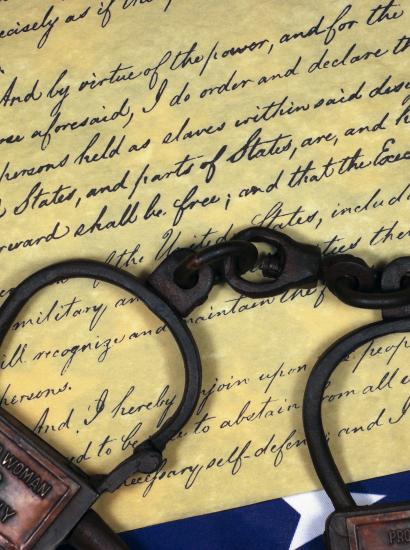 ecisely as if the
And by virtue of the power, and for the
aforesaid, I do order and declare th
persons held as slaves within said desi
States, and parts of States, are, and h
reward shall be free; and that the Exec
of the United States, includ
military an ities ther
ill recognize and maintain the
persons. peop
And I hereby enjoin upon
ed to be to abstain from all
necessary self-defen and I
WOMAN